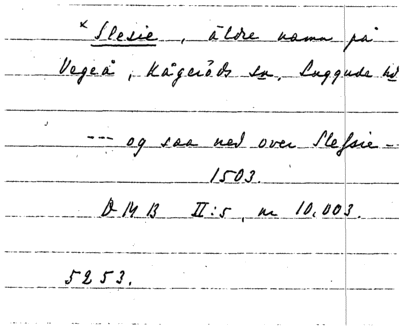 x Slesie, äldre namn på
Vegeå, Kågeröds sn, Luggude hd
--- og saa ned over Slessie --
1503.
DMB II:5, nr 10.003.
5253.